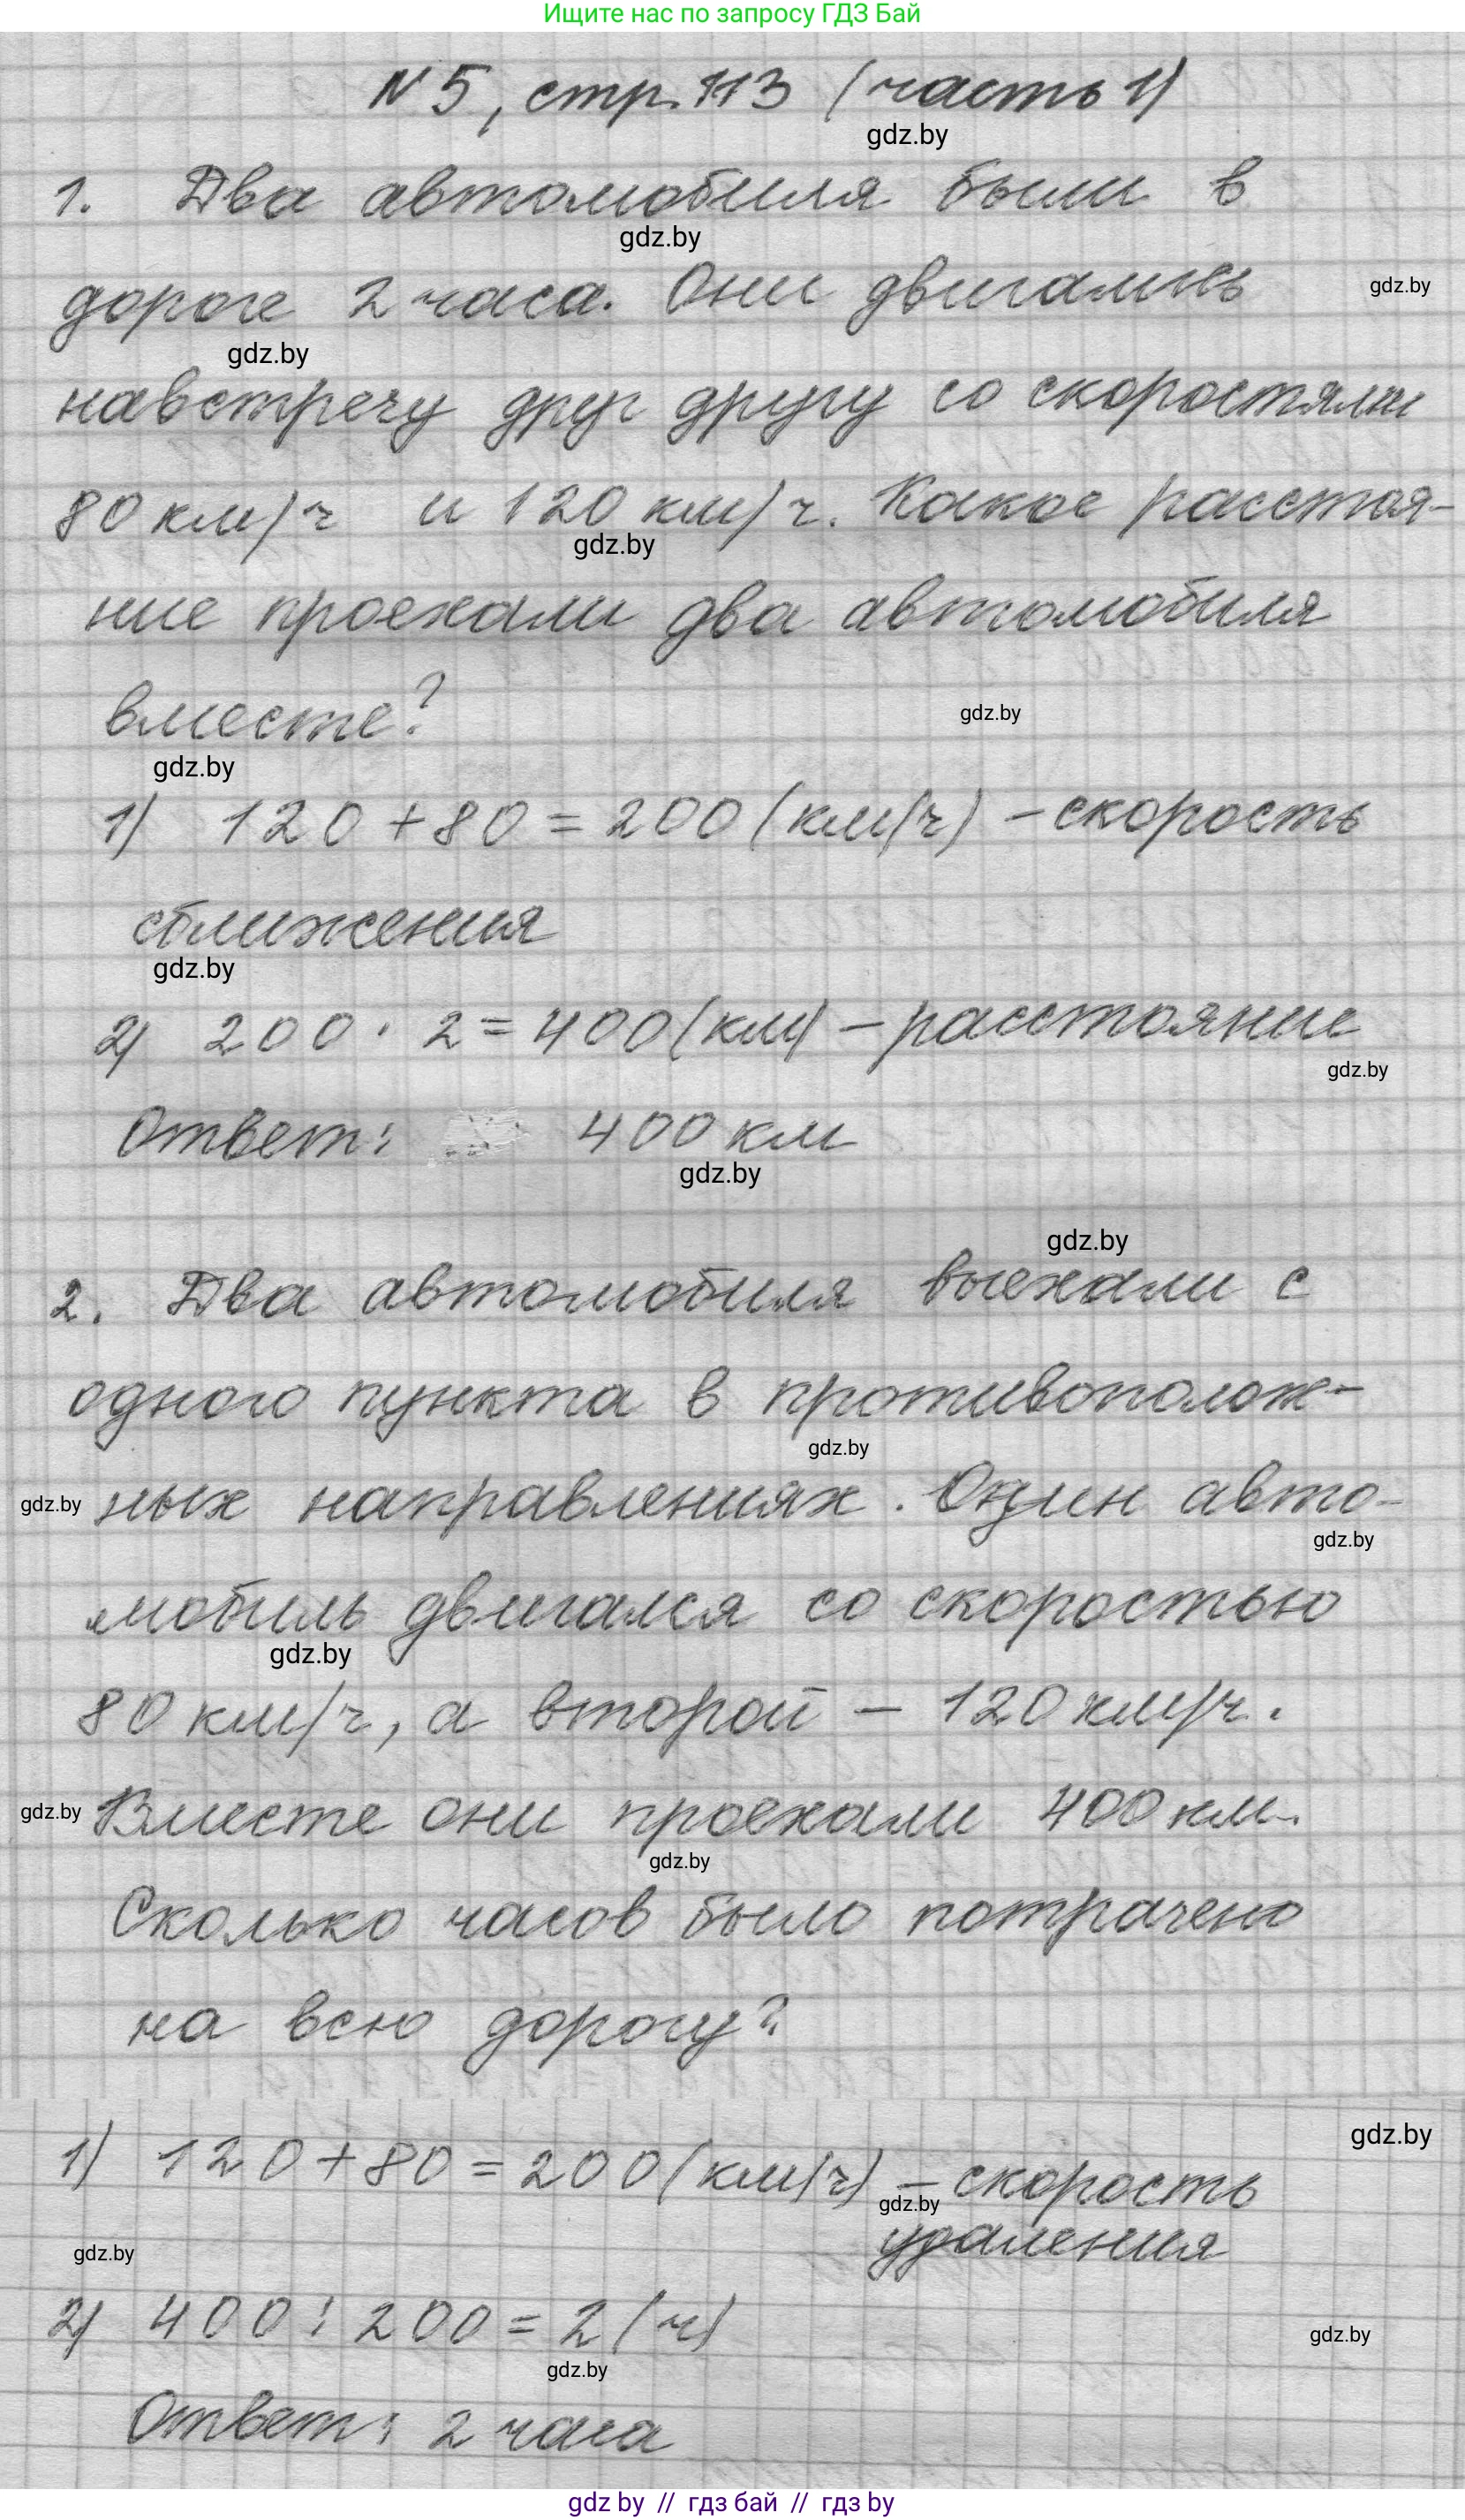 Ищите нас по запросу ГДЗ Бай
N 5, стр. 113 (часть 1)
gdz.by
1. Два автомобиля были в
gdz.by
дороге 2 часа. Они двигались
gdz.by
gdz.by
навстречу друг другу со скоростями
80 км/ч и 120 км/ч. Какое расстоя-
gdz.by
ние проехали два автомобиля
вместе?
gdz.by
gdz.by
1) 120 + 80 = 200 (км/ч) - скорость
сближения
gdz.by
2) 200 · 2 = 400 (км) - расстояние
gdz.by
Ответ: 400 км
gdz.by
gdz.by
2. Два автомобиля выехали с
одного пункта в противополож-
gdz.by
gdz.by
ных направлениях. Один авто-
gdz.by
мобиль двигался со скоростью
gdz.by
80 км/ч, а второй - 120 км/ч.
gdz.by
Вместе они проехали 400 км.
gdz.by
Сколько часов было потрачено
на всю дорогу?
gdz.by
1) 120 + 80 = 200 (км/ч) - скорость
gdz.by
удаления
gdz.by
2) 400 : 200 = 2 (ч)
gdz.by
gdz.by
Ответ: 2 часа
gdz by // гдз бай // гдз by